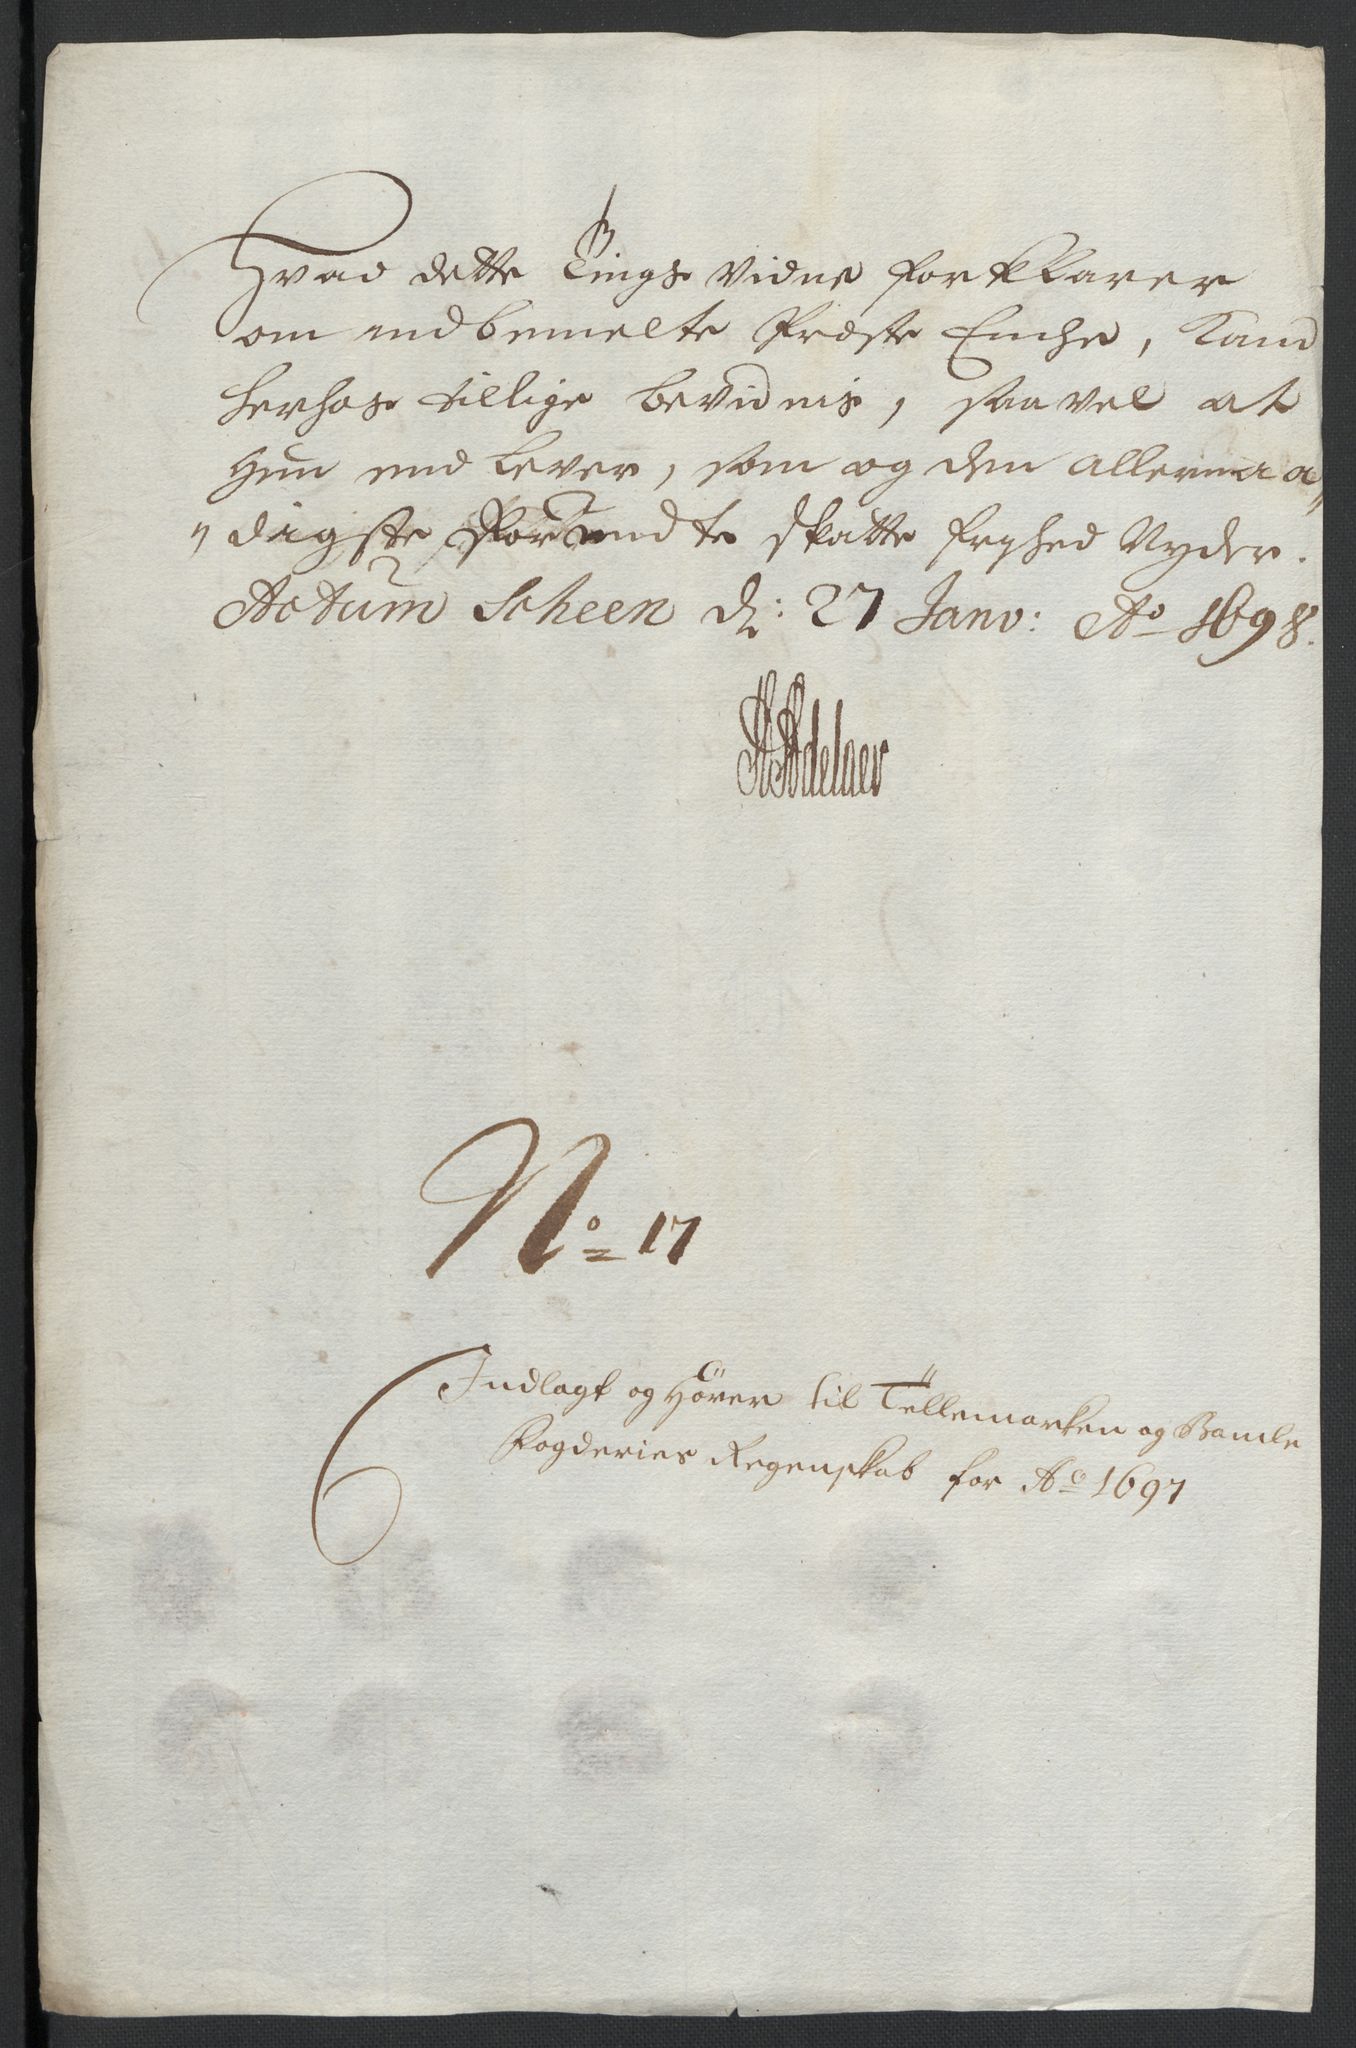 Hvad dette Tings Vidne forklarer
om indbemelte Præste Enche, Kand
herhos tillige bevidnis, saavel at
Hun end lever, som og den allernaa,,
,,digste forundte skatte fryhed Nyder.
Actum Scheen d: 27 Janv: Ao 1698.
Adelaer
No 17
Indlagt og Hörer til Tellemarken og Bamle
Fogderies Regenskab for Ao 1697